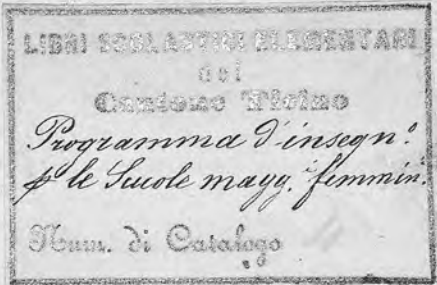 LIBRI SCOLASTICI ELEMENTARI
del
Cantone Ticino
Programma d'insegn.º
p le Scuole magg.i femmin.
Num. di Catalogo